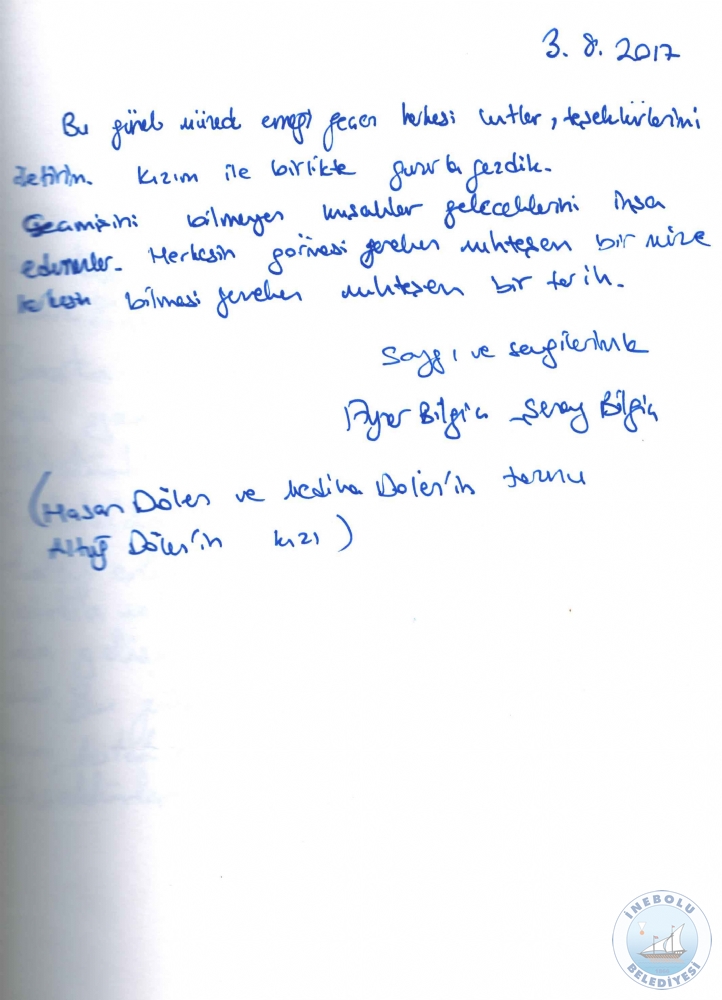 3. 8. 2017
Bu güzel müzede emeği geçen herkesi kutlar, teşekkürlerimi
iletirim. Kızım ile birlikte gururla gezdik.
Geçmişini bilmeyen kuşaklar geleceklerini inşa
edemezler. Herkesin görmesi gereken muhteşem bir müze
Herkesin bilmesi gereken muhteşem bir tarih.
Saygı ve sevgilerimle
Bilgin Şeray Bilgin
(Hasan Dölen ve Mediha Dölen'in torunu
Altuğ Dölen'in kızı)
İNEBOLU
BELEDİYESİ